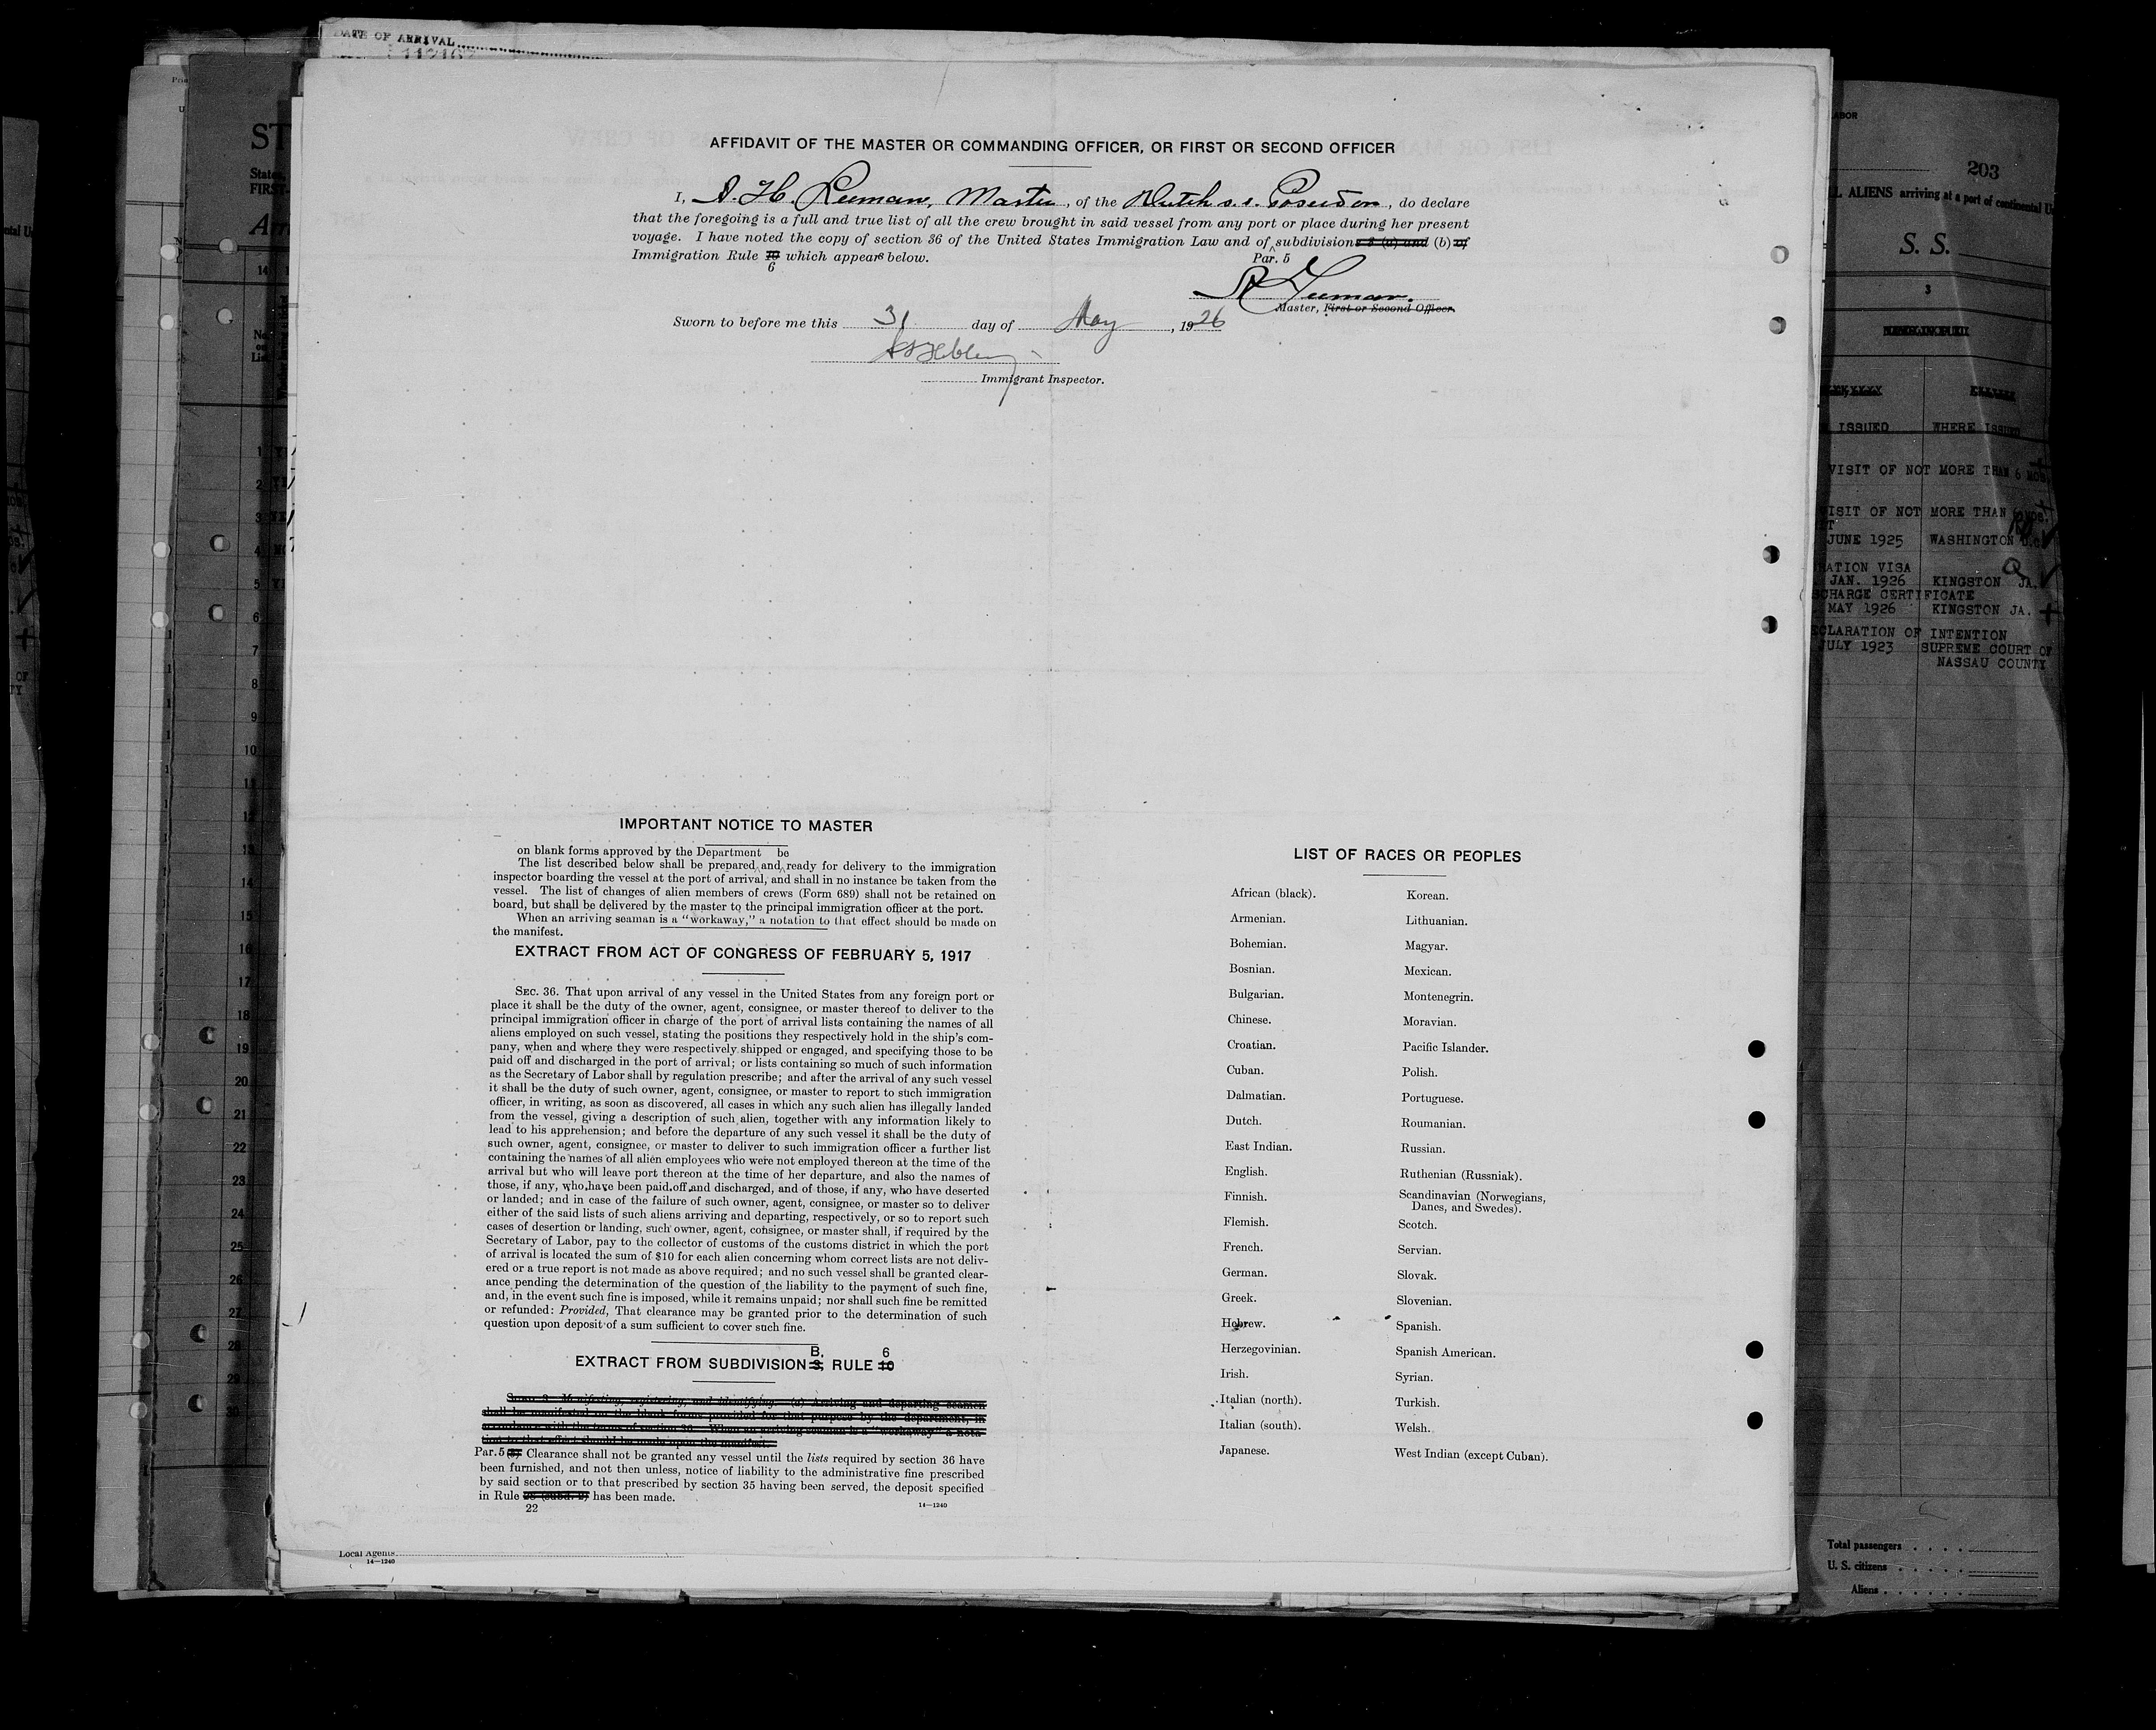 DATE OF ARRIVAL
AFFIDAVIT OF THE MASTER OR COMMANDING OFFICER, OR FIRST OR SECOND OFFICER
I, Master, of the Dutch s.s. Poseidon, do declare
that the foregoing is a full and true list of all the crew brought in said vessel from any port or place during her present
voyage. I have noted the copy of section 36 of the United States Immigration Law and of subdivisions 3 (a) and (b) of
Par. 5
Immigration Rule 10 which appears below.
6
Master, First or Second Officer.
Sworn to before me this 31 day of May, 1926
Immigrant Inspector.
IMPORTANT NOTICE TO MASTER
on blank forms approved by the Department be
The list described below shall be prepared and ready for delivery to the immigration
inspector boarding the vessel at the port of arrival, and shall in no instance be taken from the
vessel. The list of changes of alien members of crews (Form 689) shall not be retained on
board, but shall be delivered by the master to the principal immigration officer at the port.
When an arriving seaman is a "workaway," a notation to that effect should be made on
the manifest.
EXTRACT FROM ACT OF CONGRESS OF FEBRUARY 5, 1917
SEC. 36. That upon arrival of any vessel in the United States from any foreign port or
place it shall be the duty of the owner, agent, consignee, or master thereof to deliver to the
principal immigration officer in charge of the port of arrival lists containing the names of all
aliens employed on such vessel, stating the positions they respectively hold in the ship's com-
pany, when and where they were respectively shipped or engaged, and specifying those to be
paid off and discharged in the port of arrival; or lists containing so much of such information
as the Secretary of Labor shall by regulation prescribe; and after the arrival of any such vessel
it shall be the duty of such owner, agent, consignee, or master to report to such immigration
officer, in writing, as soon as discovered, all cases in which any such alien has illegally landed
from the vessel, giving a description of such alien, together with any information likely to
lead to his apprehension; and before the departure of any such vessel it shall be the duty of
such owner, agent, consignee, or master to deliver to such immigration officer a further list
containing the names of all alien employees who were not employed thereon at the time of the
arrival but who will leave port thereon at the time of her departure, and also the names of
those, if any, who have been paid off and discharged, and of those, if any, who have deserted
or landed; and in case of the failure of such owner, agent, consignee, or master so to deliver
either of the said lists of such aliens arriving and departing, respectively, or so to report such
cases of desertion or landing, such owner, agent, consignee, or master shall, if required by the
Secretary of Labor, pay to the collector of customs of the customs district in which the port
of arrival is located the sum of $10 for each alien concerning whom correct lists are not deliv-
ered or a true report is not made as above required; and no such vessel shall be granted clear-
ance pending the determination of the question of the liability to the payment of such fine,
and, in the event such fine is imposed, while it remains unpaid; nor shall such fine be remitted
or refunded: Provided, That clearance may be granted prior to the determination of such
question upon deposit of a sum sufficient to cover such fine.
B, 6
EXTRACT FROM SUBDIVISION 3, RULE 10
Par. 5 Clearance shall not be granted any vessel until the lists required by section 36 have
been furnished, and not then unless, notice of liability to the administrative fine prescribed
by said section or to that prescribed by section 35 having been served, the deposit specified
in Rule has been made.
22
14—1240
LIST OF RACES OR PEOPLES
African (black).
Armenian.
Bohemian.
Bosnian.
Bulgarian.
Chinese.
Croatian.
Cuban.
Dalmatian.
Dutch.
East Indian.
English.
Finnish.
Flemish.
French.
German.
Greek.
Hebrew.
Herzegovinian.
Irish.
Italian (north).
Italian (south).
Japanese.
Korean.
Lithuanian.
Magyar.
Mexican.
Montenegrin.
Moravian.
Pacific Islander.
Polish.
Portuguese.
Roumanian.
Russian.
Ruthenian (Russniak).
Scandinavian (Norwegians,
Danes, and Swedes).
Scotch.
Servian.
Slovak.
Slovenian.
Spanish.
Spanish American.
Syrian.
Turkish.
Welsh.
West Indian (except Cuban).
Local Agents
14—1240
203
ALIENS arriving at a port of continental
S. S.
3
ISSUED WHERE ISSUED
VISIT OF NOT MORE THAN 6 MOS.
VISIT OF NOT MORE THAN 6 MOS.
JUNE 1925 WASHINGTON D.C.
VISA
JAN. 1926 KINGSTON JA.
CERTIFICATE
MAY 1926 KINGSTON JA.
DECLARATION OF INTENTION
JULY 1923 SUPREME COURT OF
NASSAU COUNTY
Total passengers
U. S. citizens
Aliens